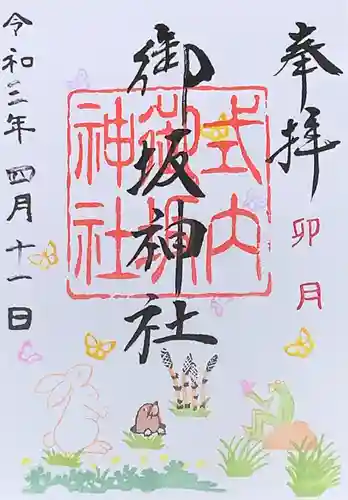 奉拝
卯月
御坂神社
式内
御坂
神社
令和三年 四月 十一日